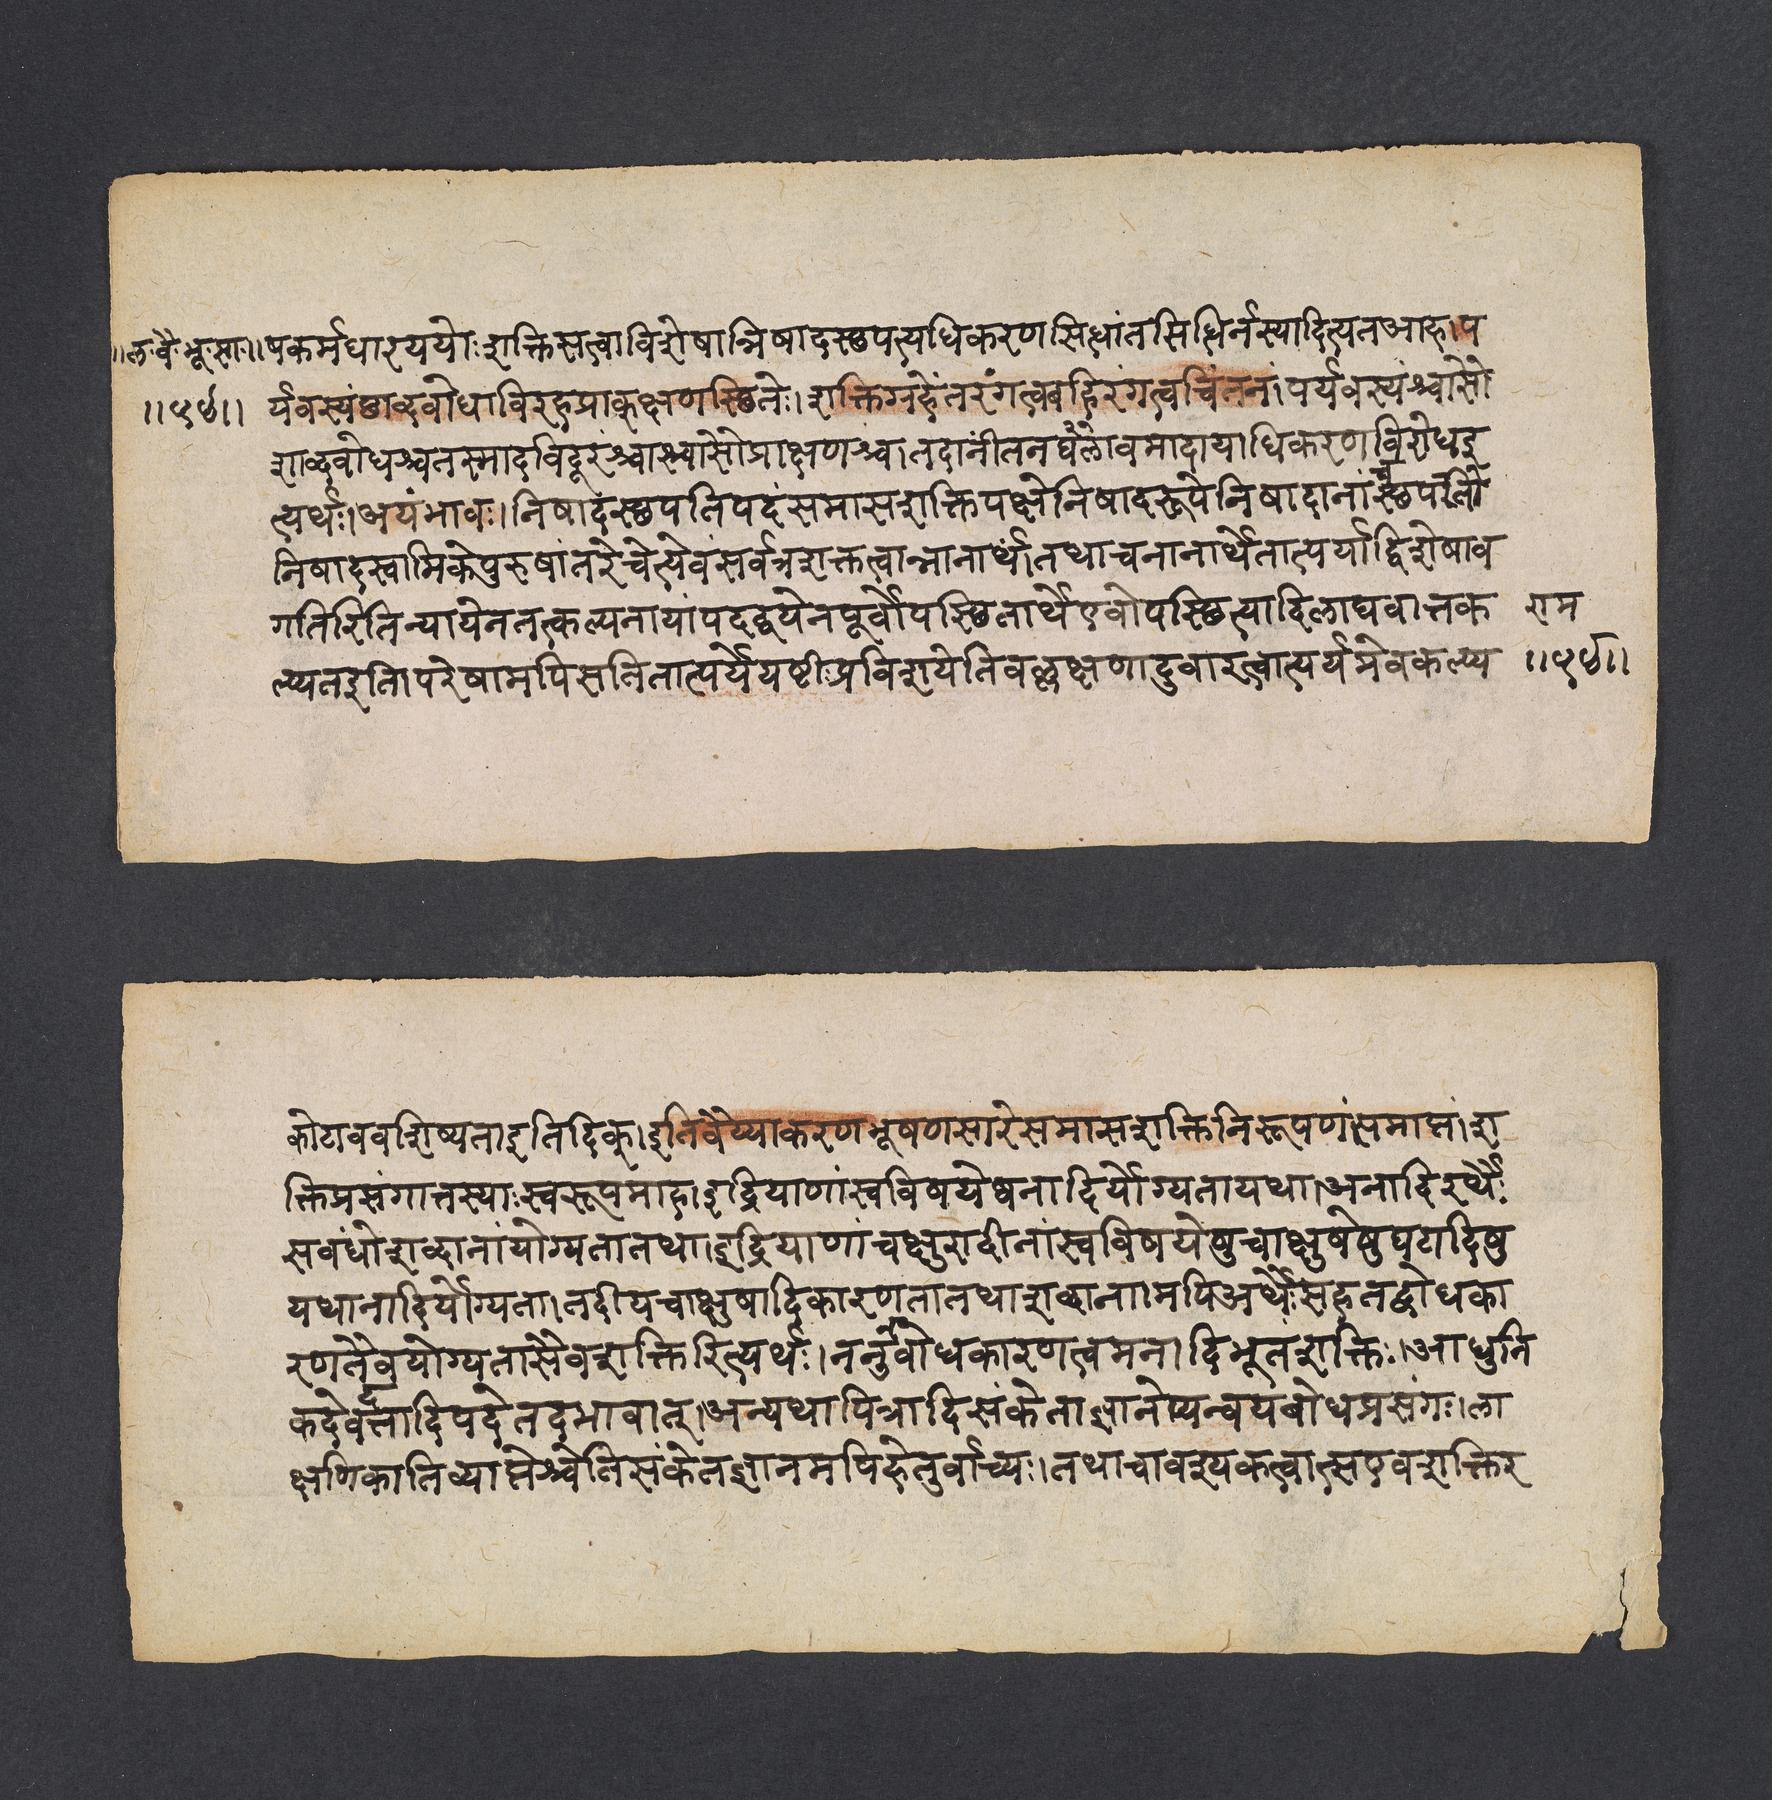 ॥ल·वै·भू·सा॥षकर्मधारययोःशक्तिसत्वाविशेषान्निषादस्छपत्यधिकरणसिध्धांतसिध्धिर्नस्यादित्यतआह।प
॥५५॥ र्यवस्यंछाब्दबोधाविरहप्राक्क्षणस्छितेः।शक्तिग्रहेंतरंगत्वबहिरंगत्वचिंतनं।पर्यवस्यंश्चासो
शाब्दबोधश्चतस्माद्विदूरंश्चाश्चासौप्राक्षणश्च।तदानींतन लावमादायाधिकरणविरोधइ
त्यर्थः।अयंभावः।निषादस्छपतिपदंसमासशक्तिपक्षेनिषादरूपेनिषादानांस्छपतौ
निषादस्वामिकेपुरुषांतरेचेत्येवंसर्वत्रशक्तत्वान्नानार्थं।तथाचनानार्थेतात्पर्याद्विशेषाव
गतिरितिन्यायेनतत्कल्पनायांपदद्वयेनपूर्वोपस्छितार्थेएवोपस्छित्यादिलाघवात्तक राम
ल्प्यतइति।परेषामपिसतितात्पर्येयष्टीःप्रविशयेतिवल्लक्षणादुवारत्वात्पर्यमेवकल्प्य ॥५५॥
कोटाववशिष्यत।इतिदिक्।इतिवैय्याकरणभूषणसारेसमासशक्तिनिरूपणंसमाप्तं।श
क्तिप्रसंगात्तस्याःस्वरूपमाह।इद्रियाणांस्वविषयेष्वनादिर्योग्यतायथा।अनादिरर्थैः
सवंधोशब्दानांयोग्यतातथा।इद्रियाणांचक्षुरादीनांस्वविषयेषुचाक्षुषेषुघटादिषु
यथानादिर्योग्यता।तदीयचाक्षुषादिकारणतातथाशब्दानामपिअर्थैःसहतद्बोधका
रणतैवयोग्यतासैवशक्तिरित्यर्थः।ननुबोधकारणत्वमनादिभूतंशक्तिः।आधुनि
कदेवत्तादिपदेतदभावात्।अन्यथापित्रादिसंकेताज्ञानेप्यन्वयबोधप्रसंगः।ला
क्षणिकातिव्याप्तेश्चेतिसंकेतज्ञानमपिहेतुर्वाच्यः।तथाचावश्यकत्वात्सएवशक्तिर